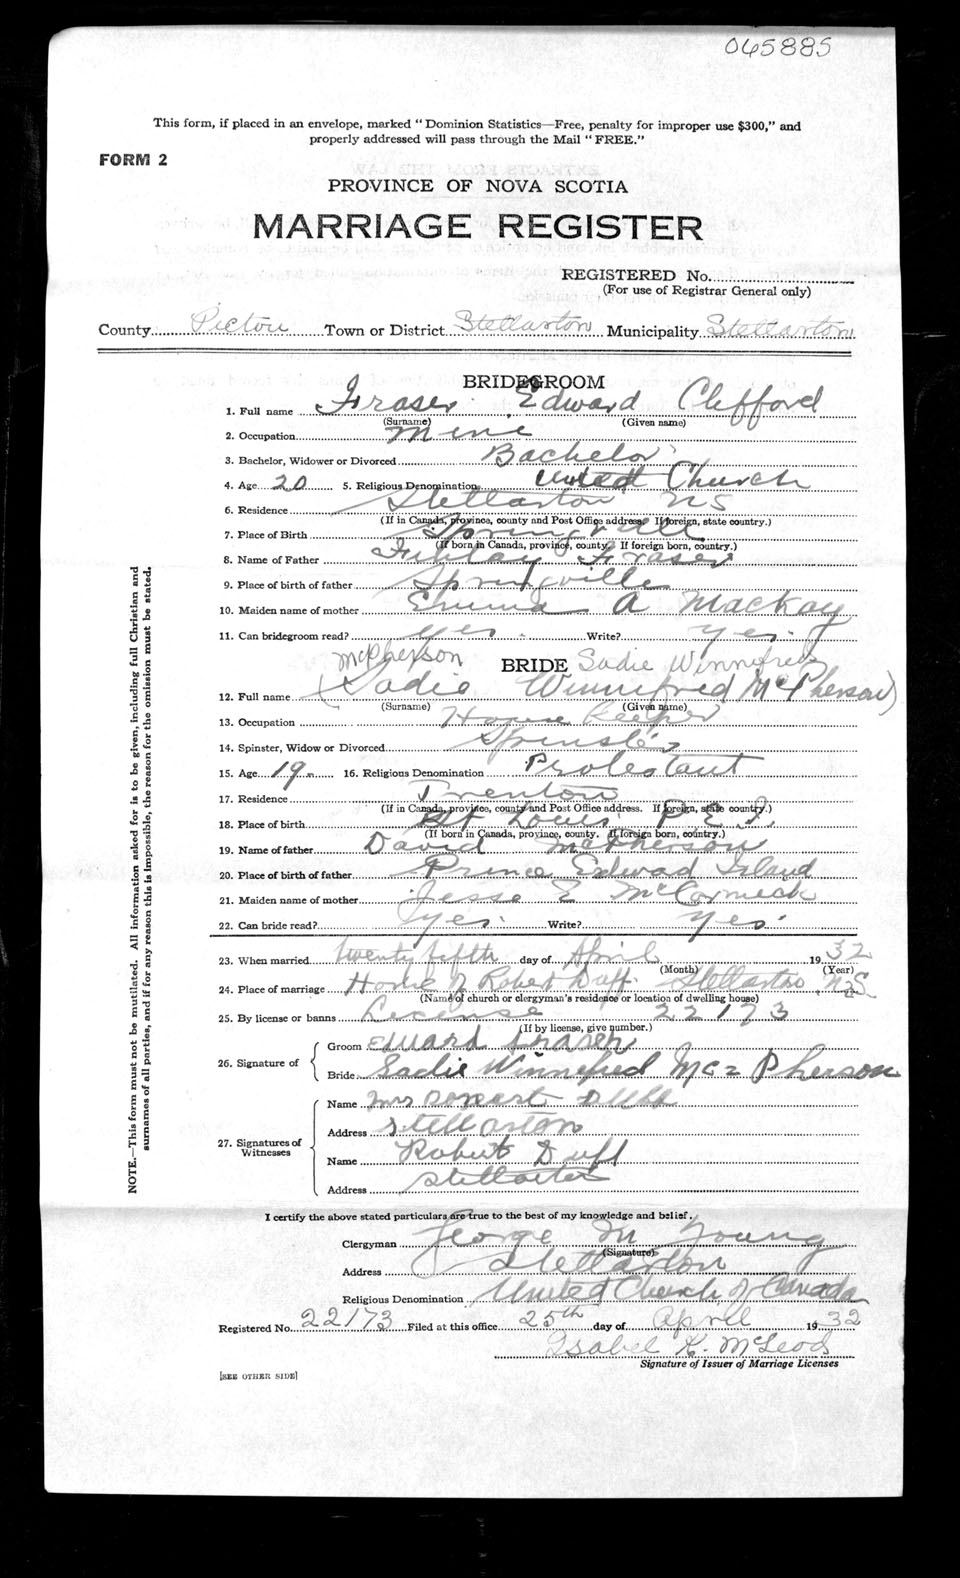 065885
This form, if placed in an envelope, marked "Dominion Statistics—Free, penalty for improper use $300," and
properly addressed will pass through the Mail "FREE."
FORM 2
PROVINCE OF NOVA SCOTIA
MARRIAGE REGISTER
REGISTERED No.
(For use of Registrar General only)
County Pictou Town or District Stellarton Municipality Stellarton
BRIDEGROOM
1. Full name Fraser Edward Clifford
(Surname) (Given name)
2. Occupation
3. Bachelor, Widower or Divorced Bachelor
4. Age 20 5. Religious Denomination United Church
6. Residence Stellarton NS
(If in Canada, province, county and Post Office address. If foreign, state country.)
7. Place of Birth
(If born in Canada, province, county. If foreign born, country.)
8. Name of Father Finlay Fraser
9. Place of birth of father Springville
10. Maiden name of mother Emma A Mackay
11. Can bridegroom read? yes Write? yes.
McPherson BRIDE Sadie Winnifred
12. Full name (Sadie Winnifred McPherson)
(Surname) (Given name)
13. Occupation House Keeper
14. Spinster, Widow or Divorced Spinster
15. Age 19 16. Religious Denomination Protestant
17. Residence Trenton
(If in Canada, province, county and Post Office address. If foreign, state country.)
18. Place of birth St Louis P.E.I.
(If born in Canada, province, county. If foreign born, country.)
19. Name of father David McPherson
20. Place of birth of father Prince Edward Island
21. Maiden name of mother Jesse E McCormick
22. Can bride read? yes. Write? yes.
23. When married twenty fifth day of April 1932
(Month) (Year)
24. Place of marriage Home of Robert Duff Stellarton N.S
(Name of church or clergyman's residence or location of dwelling house)
25. By license or banns License 22173
(If by license, give number.)
26. Signature of
Groom Edward Fraser
Bride Sadie Winnefred McPherson
27. Signatures of Witnesses
Name Mrs Robert Duff
Address Stellarton
Name Robert Duff
Address Stellarton
I certify the above stated particulars are true to the best of my knowledge and belief.
Clergyman George M Young
(Signature)
Address Stellarton
Religious Denomination United Church of Canada
Registered No. 22173 Filed at this office 25th day of April 1932
Isabel K. McLeod
Signature of Issuer of Marriage Licenses
[SEE OTHER SIDE]
NOTE.—This form must not be mutilated. All information asked for is to be given, including full Christian and
surnames of all parties, and if for any reason this is impossible, the reason for the omission must be stated.